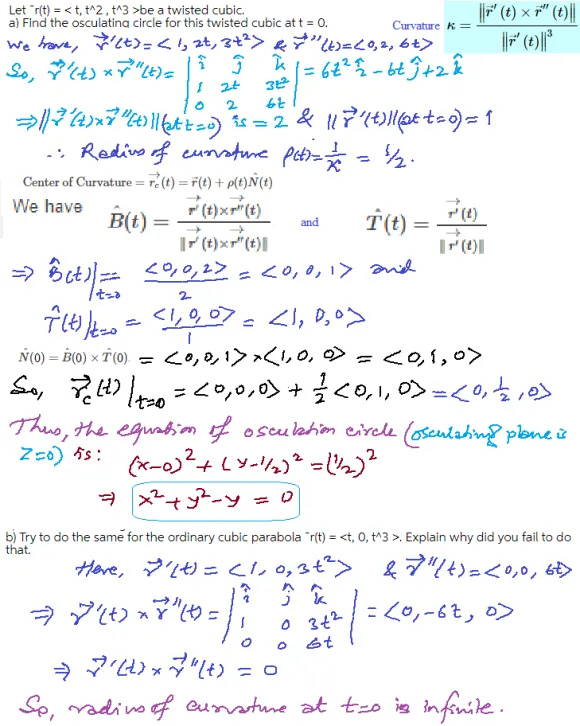 Let ¯r(t) = < t, t^2 , t^3 >be a twisted cubic.
a) Find the osculating circle for this twisted cubic at t = 0.
Curvature κ = ‖r⃗′ (t) × r⃗″ (t)‖ / ‖r⃗′ (t)‖³
We have, r⃗′(t) = < 1, 2t, 3t² > & r⃗″(t) = <0, 2, 6t>
So, r⃗′(t) × r⃗″(t) = | î ĵ k̂ | = 6t² î − 6t ĵ + 2 k̂
1 2t 3t²
0 2 6t
⇒ ‖r⃗′(t) × r⃗″(t)‖ (at t=0) is = 2 & ‖r⃗′(t)‖ (at t=0) = 1
∴ Radius of curvature ρ(t) = 1/κ = 1/2.
Center of Curvature = r⃗c (t) = r̄(t) + ρ(t)N̂(t)
We have B̂(t) = r⃗′ (t) × r⃗″ (t) / ‖r⃗′ (t) × r⃗″ (t)‖ and T̂(t) = r⃗′ (t) / ‖r⃗′ (t)‖
⇒ B̂(t)|t=0 = <0, 0, 2> / 2 = <0, 0, 1> and
T̂(t)|t=0 = <1, 0, 0> / 1 = <1, 0, 0>
N̂(0) = B̂(0) × T̂(0). = <0, 0, 1> × <1, 0, 0> = <0, 1, 0>
So, r⃗c(t)|t=0 = <0, 0, 0> + 1/2 <0, 1, 0> = <0, 1/2, 0>
Thus, the equation of osculation circle (osculating plane is
z=0) is: (x−0)² + (y−1/2)² = (1/2)²
⇒ x² + y² − y = 0
b) Try to do the same for the ordinary cubic parabola ¯r(t) = <t, 0, t^3 >. Explain why did you fail to do
that.
Here, r⃗′(t) = <1, 0, 3t²> & r⃗″(t) = <0, 0, 6t>
⇒ r⃗′(t) × r⃗″(t) = | î ĵ k̂ | = <0, −6t, 0>
1 0 3t²
0 0 6t
⇒ r⃗′(t) × r⃗″(t) = 0
So, radius of curvature at t=0 is infinite.